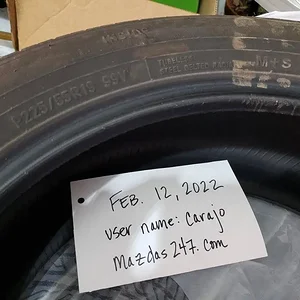 P225/65R19 99V
TUBELESS
M+S
FEB. 12, 2022
user name: Carajo
Mazdas247.com